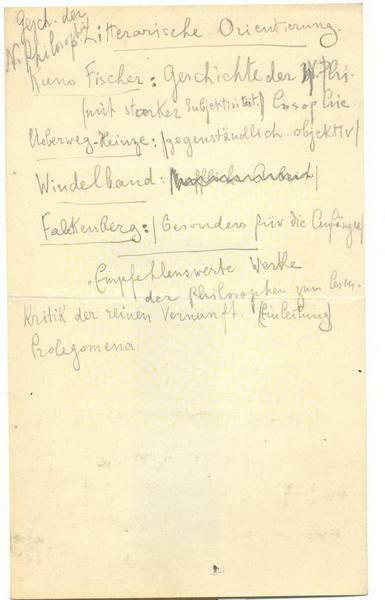 Gesch. der
N. Philosophie
Litterarische Orientierung.
Kuno Fischer: Geschichte der N. Phi-
(mit starker Subjektivität.) losophie
Ueberweg-Heinze: /gegenständlich. objektiv/
Windelband:
Falkenberg: /besonders für die Anfänge/
Empfehlenswerte Werke
der Philosophen zum lesen.
Kritik der reinen Vernunft. (Einleitung)
Prolegomena.